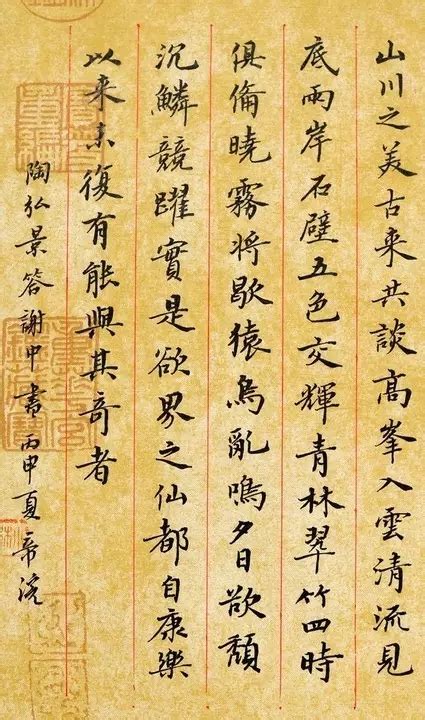 山川之美古来共談高峯入雲清流見
底兩岸石壁五色交輝青林翠竹四時
俱俻曉霧将歇猿鳥亂鳴夕日欲頹
沉鱗競躍實是欲界之仙都自康樂
以来未復有能與其奇者
陶弘景答謝中書丙申夏